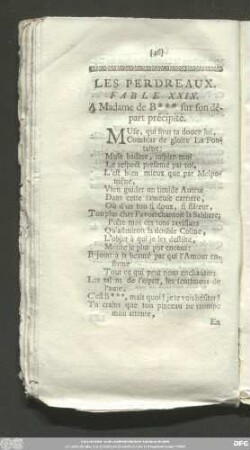 (48)
LES PERDREAUX.
FABLE XXIX.
A Madame de B*** sur son dé-
part précipité.
Muse, qui sous ta douce loi,
Comblas de gloire La Fon-
taine;
Muse badine, inspire moi
Le respect présenté par toi,
L'est bien mieux que par Melpo-
mène,
Vien guider un timide Auteur
Dans cette fameuse carriere,
Où d'un ton si doux, si flâteur,
Ton plus cher Favori chantoit la
Fasse moi ces sons
Qu'admiroit la docile
L'objet à qui je les destine,
Mérite le plus pur encens:
Il joint à la beauté par qui l'Amour en-
Tout ce qui peut nous enchanter:
Les de l'esprit, les sentimens de
l'ame.
C'est B***, mais quoi! je te vois hésiter!
Tu crains que ton pinceau ne trompe
mon attente,
En